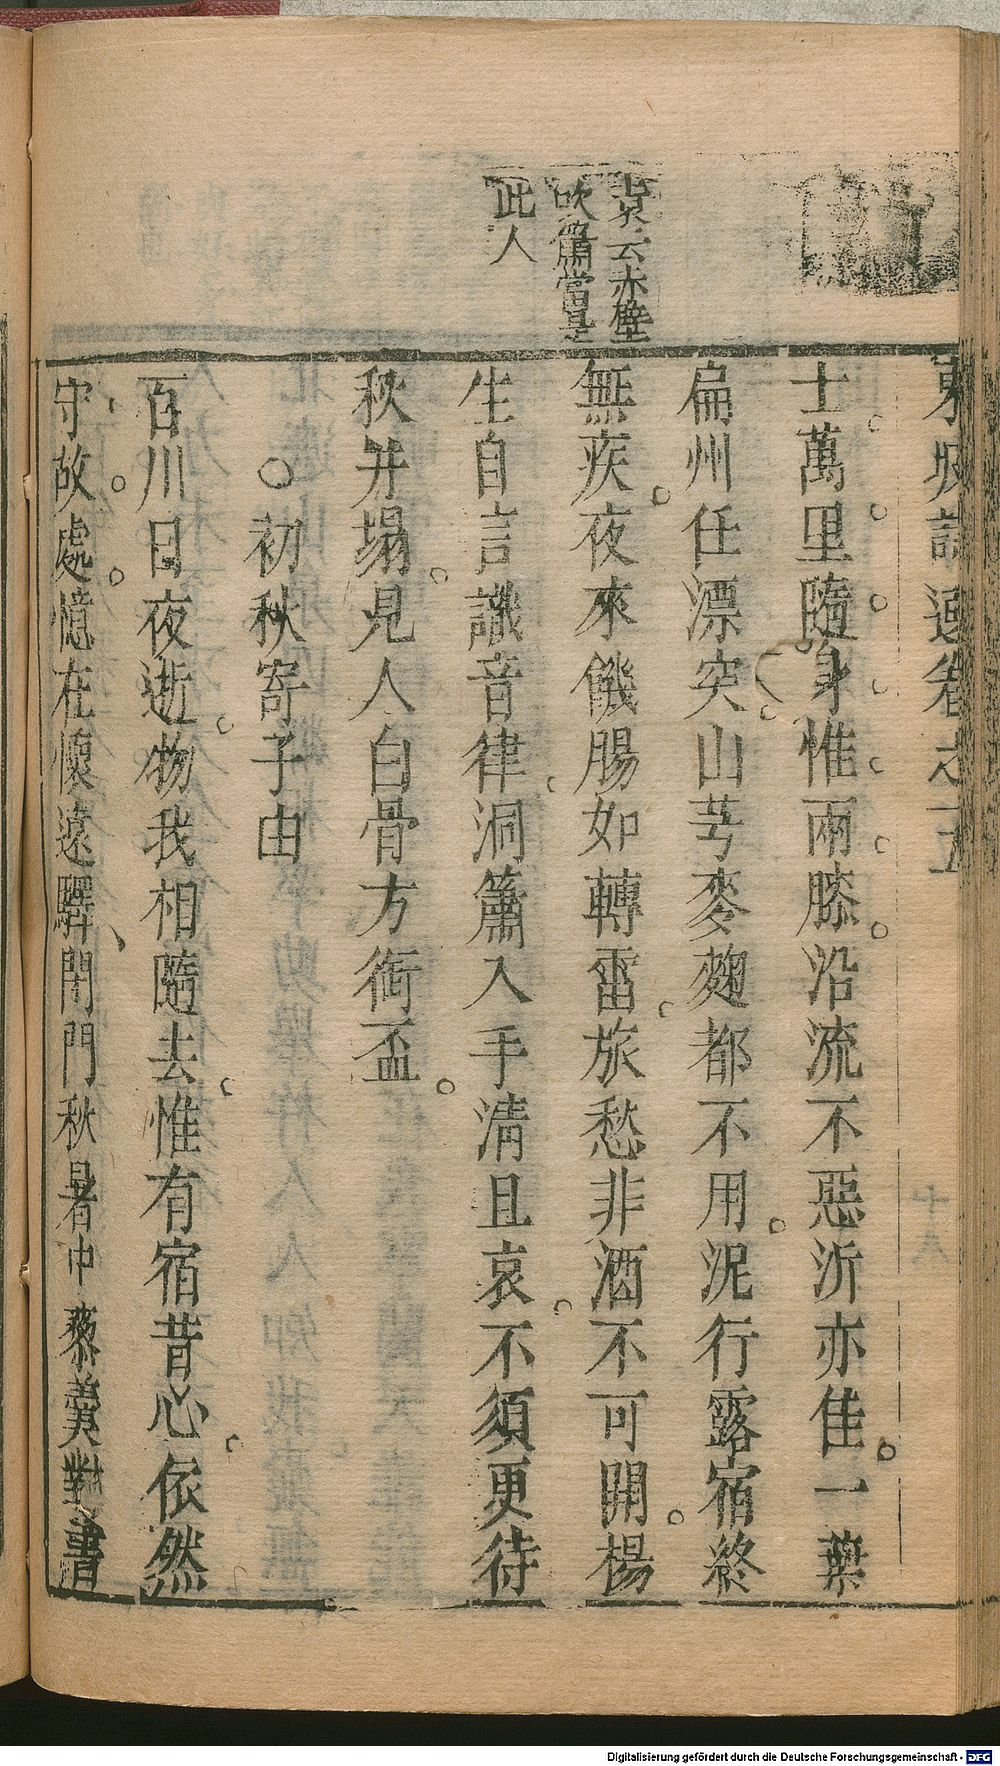 東坡詩選卷之五
士萬里隨身惟兩膝沿流不惡泝亦佳一葉
扁州任漂突山芎麥麴都不用泥行露宿終
無疾夜來饑腸如轉雷旅愁非酒不可開楊
生自言識音律洞簫入手清且哀不須更待
秋井塌見人白骨方銜盃
○初秋寄子由
百川日夜逝物我相隨去惟有宿昔心依然
守故處憶在懷遠驛閉門秋暑中藜羹對書
云赤壁
吹簫當是
此人
十八
Digitalisierung gefördert durch die Deutsche Forschungsgemeinschaft - DFG